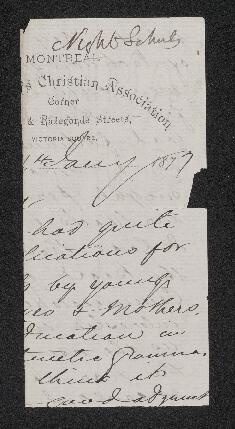 Night Schools
MONTREAL
s Christian Association
Corner
& Radegonde Streets,
VICTORIA SQUARE.
Jany 1877
had quite
lications for
by young
& Mothers
ducation in
metic Gramma
think it
good adjunct